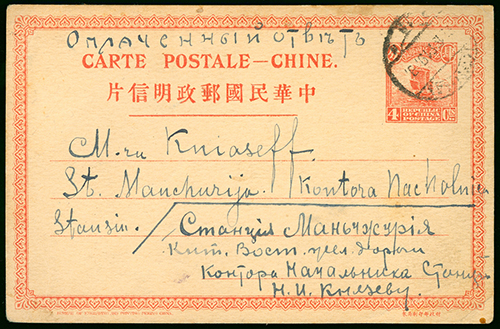 Оплаченный отвѣтъ
CARTE POSTALE—CHINE.
片信明政郵國民華中
4
REPUBLIC
OF CHINA
POSTAGE
M-ru Kniaseff
St. Manchurija. Kontora Nacholni
Stansiu.
Станція Маньчжурія
Кит. Вост. жел. дороги
Контора Начальника Станц
Н.И. Князеву.